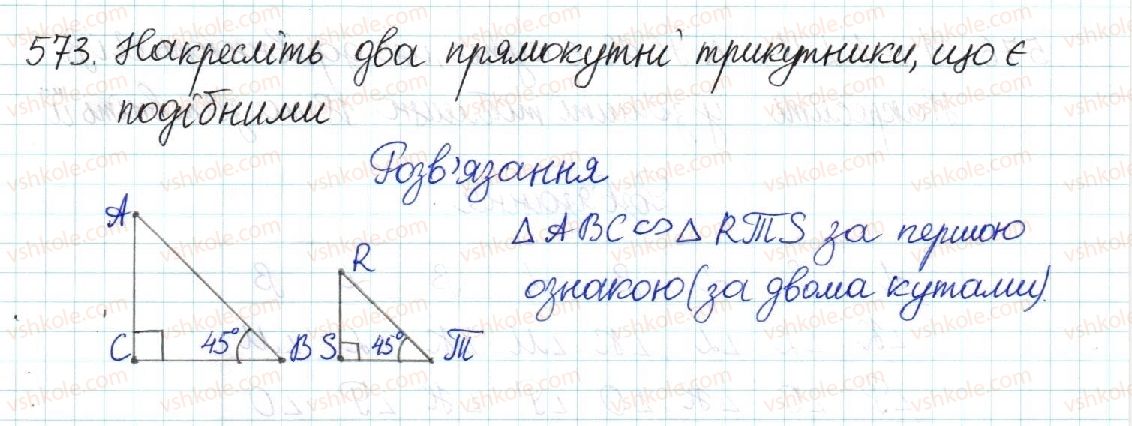 573. Накресліть два прямокутні трикутники, що є
подібними
Розв'язання
△ABC ∽ △RTS за першою
ознакою (за двома кутами).
A
R
C
45°
B
S
45°
T
vshkole.com